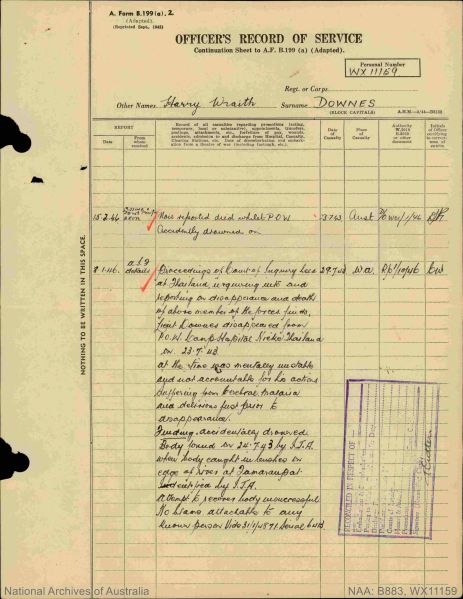 A. Form B.199 (a). 2
(Adapted).
(Reprinted Sept., 1942)
OFFICER'S RECORD OF SERVICE
Continuation Sheet to A.F. B.199 (a) (Adapted).
Personal Number
WX 11159
Regt. or Corps
Other Names Harry Wraith Surname DOWNES
(BLOCK CAPITALS)
REPORT
Date
From whom received
Record of all casualties regarding promotions (acting, temporary, local or substantive), appointments, transfers, postings, attachments, etc., forfeiture of pay, wounds, accidents, admission to and discharge from Hospital, Casualty Clearing Stations, etc. Date of disembarkation and embarkation from a theatre of war (including furlough, etc.).
Date of Casualty
Place of Casualty
Authority
Initials of Officer certifying to correctness of entries
NOTHING TO BE WRITTEN IN THIS SPACE.
15.2.46 Now reported died whilst P.O.W. 23.7.43 Aust
Accidently drowned on
8.1.46. details Proceedings of Court of Inquiry held 23.7.43 W.A.
at Thailand, inquiring into and
reporting on disappearance and death
of above member of the forces finds,
Lieut Downes disappeared from
P.O.W. Camp Hospital Thailand
on 23.7.43
at the time was mentally unstable
and not accountable for his actions
suffering from cerebral malaria
and delirious just prior to
disappearance.
Finding, accidentally drowned
Body found on 24.7.43 by I.J.A.
when body caught in branches on
edge of river at
identified by I.J.A.
Attempt to recover body unsuccessful
No blame attachable to any
known person
RECONCILED IN RESPECT OF
National Archives of Australia
NAA: B883, WX11159